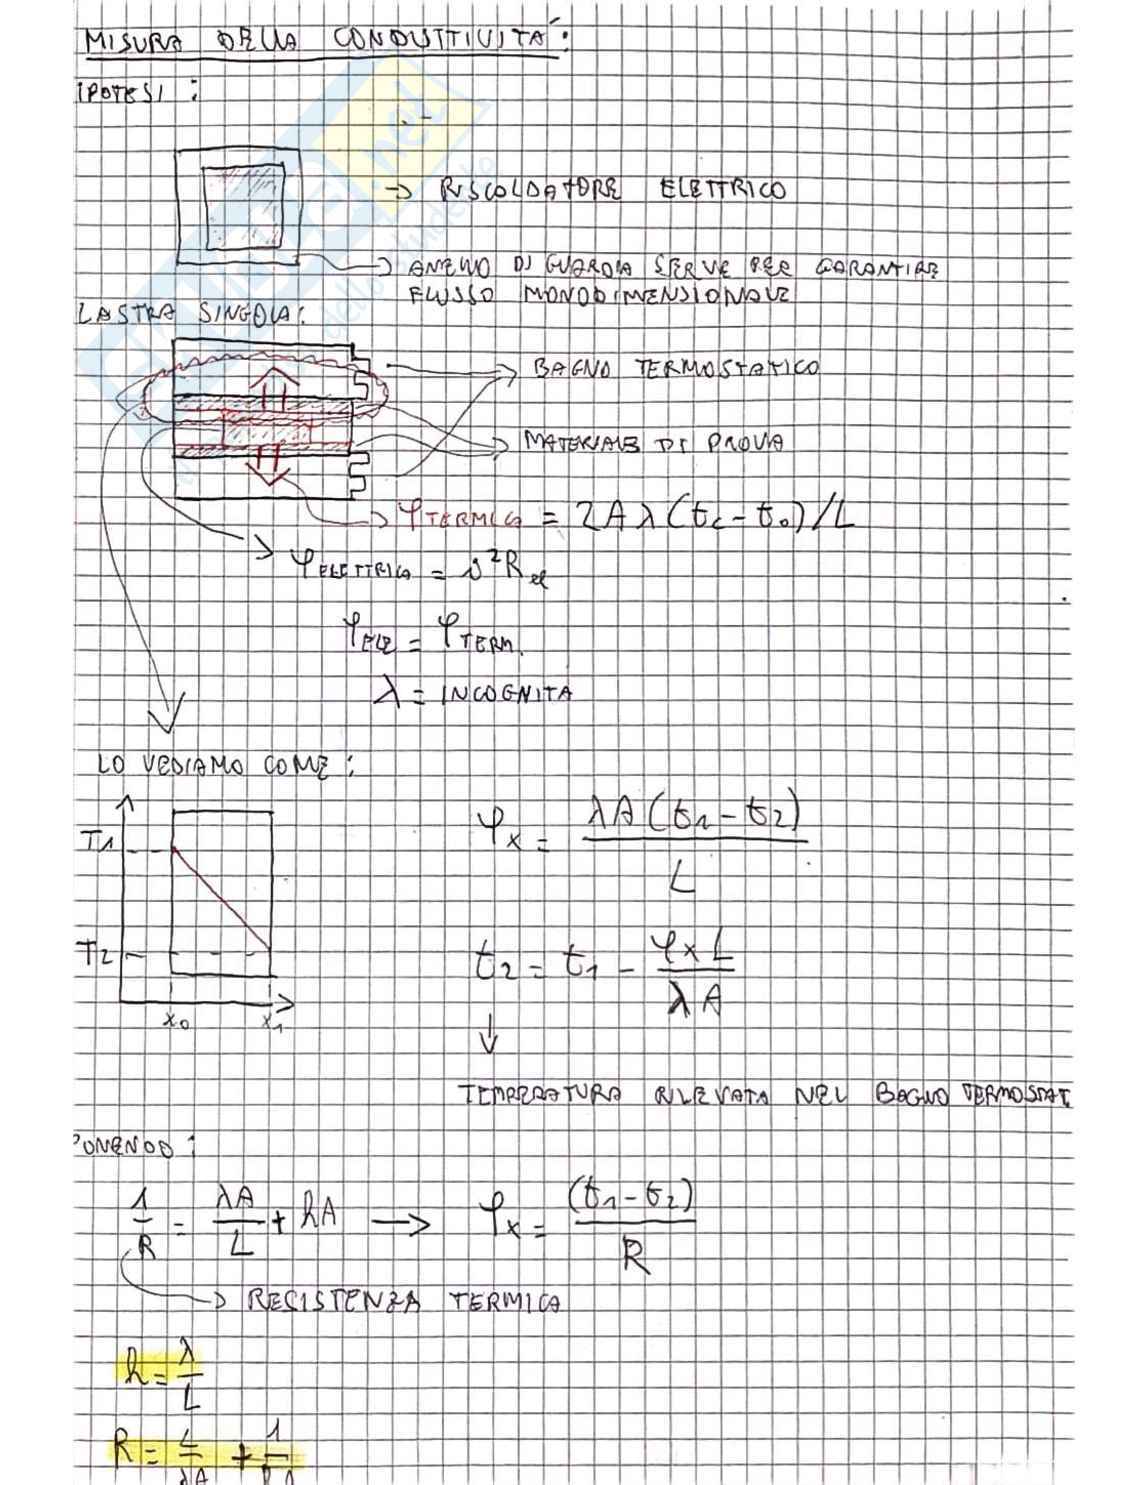 MISURA DELLA CONDUTTIVITÀ:
IPOTESI:
→ RISCALDATORE ELETTRICO
→ ANELLO DI GUARDIA SERVE PER GARANTIRE
FLUSSO MONODIMENSIONALE
LASTRA SINGOLA:
BAGNO TERMOSTATICO
MATERIALE DI PROVA
φTERMICA = 2Aλ(tc - to)/L
φELETTRICA = i²Rel
φELE = φTERM.
λ = INCOGNITA
LO VEDIAMO COME:
T1
T2
x0 x1
φx = λA(t1 - t2) / L
t2 = t1 - φx L / λA
↓
TEMPERATURA RILEVATA NEL BAGNO TERMOSTAT.
PONENDO:
1/R = λA/L + hA → φx = (t1 - t2) / R
→ RESISTENZA TERMICA
h = λ/L
R = L/λA + 1/hA